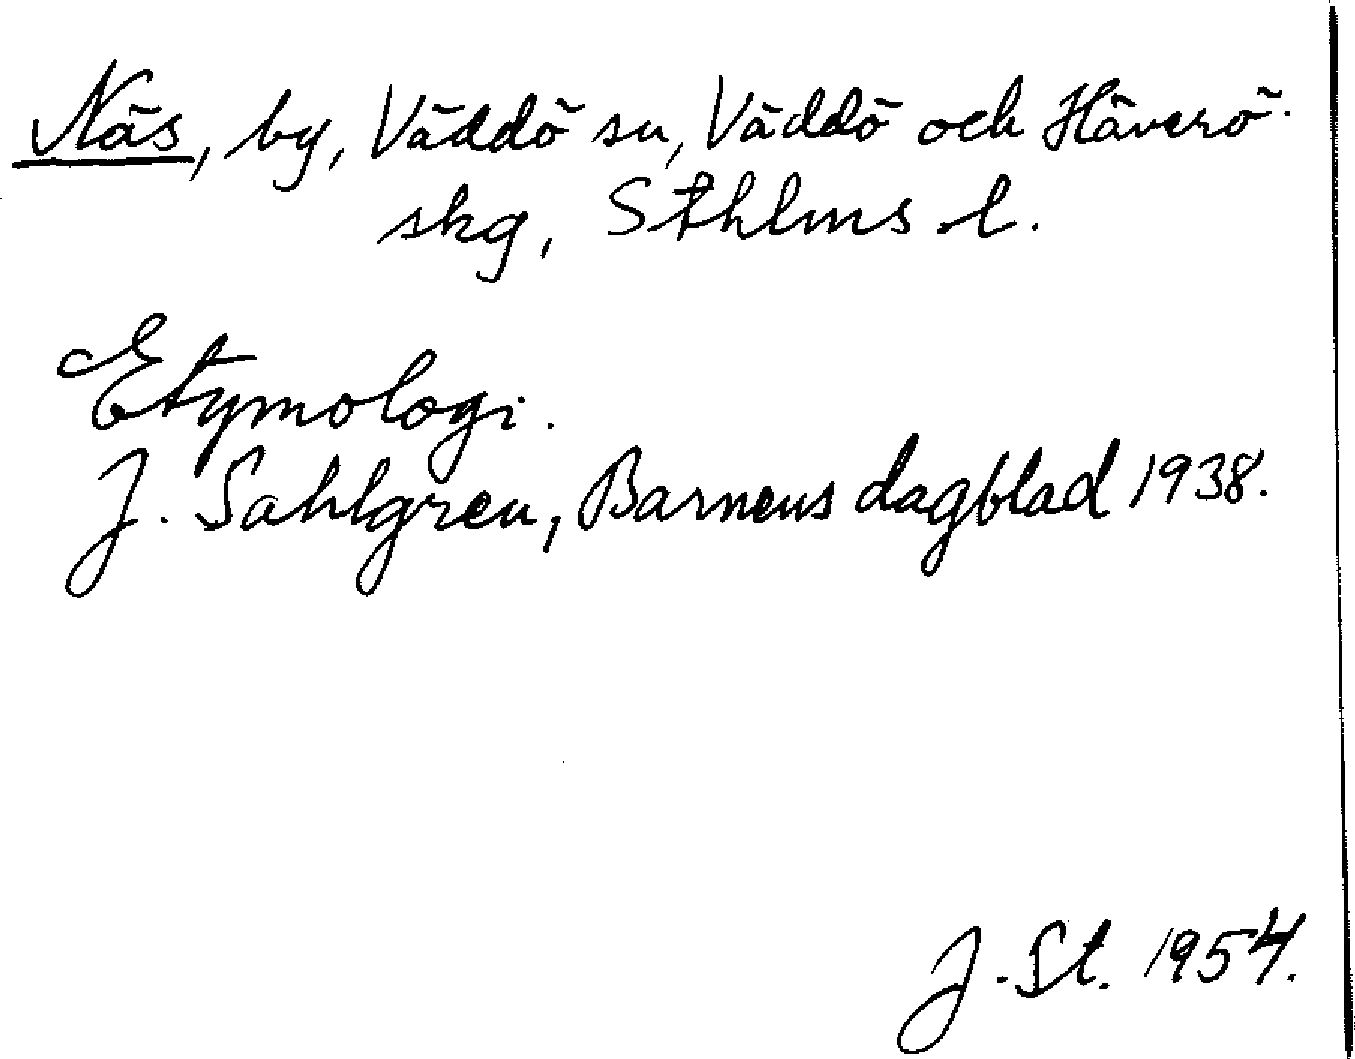 Näs, by, Väddö sn, Väddö och Häverö
skg, Sthlms l.
Etymologi.
J. Sahlgren, Barnens dagblad 1938.
J. St. 1954.